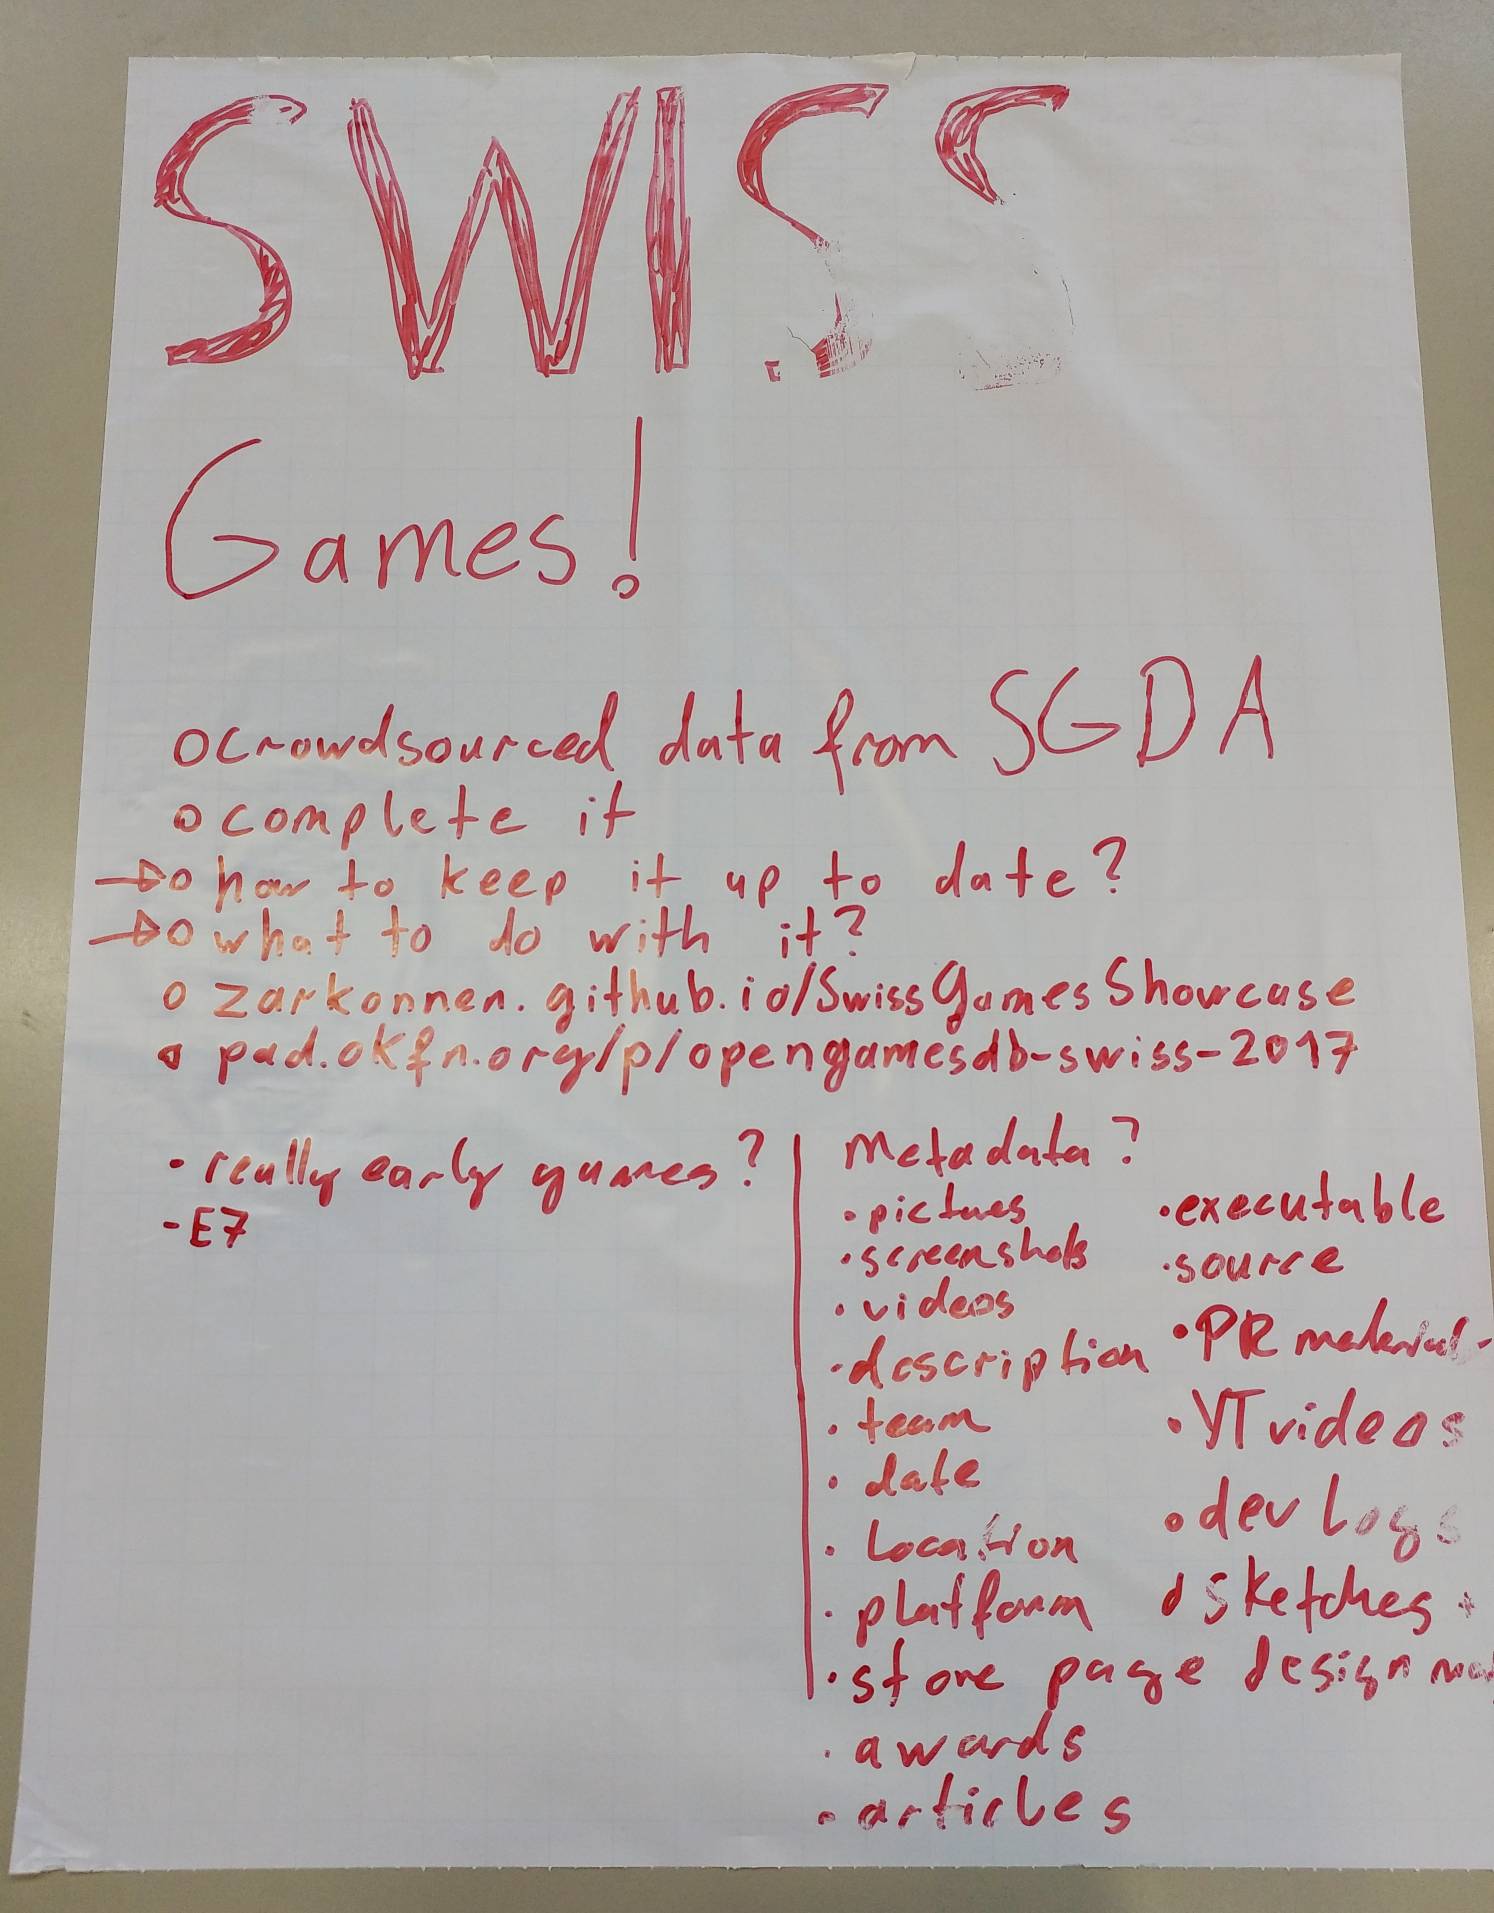 SWISS
Games!
o crowdsourced data from SGDA
o complete it
→ o how to keep it up to date?
→ o what to do with it?
o zarkonnen.github.io/SwissGamesShowcase
o pad.okfn.org/p/opengamesdb-swiss-2017
• really early games?
- E7
Metadata?
• pictures
• screenshots
• videos
• description
• team
• date
• Location
• platform
• store page
• awards
• articles
• executable
• source
• PR material
• YT videos
• dev logs
• sketches +
design